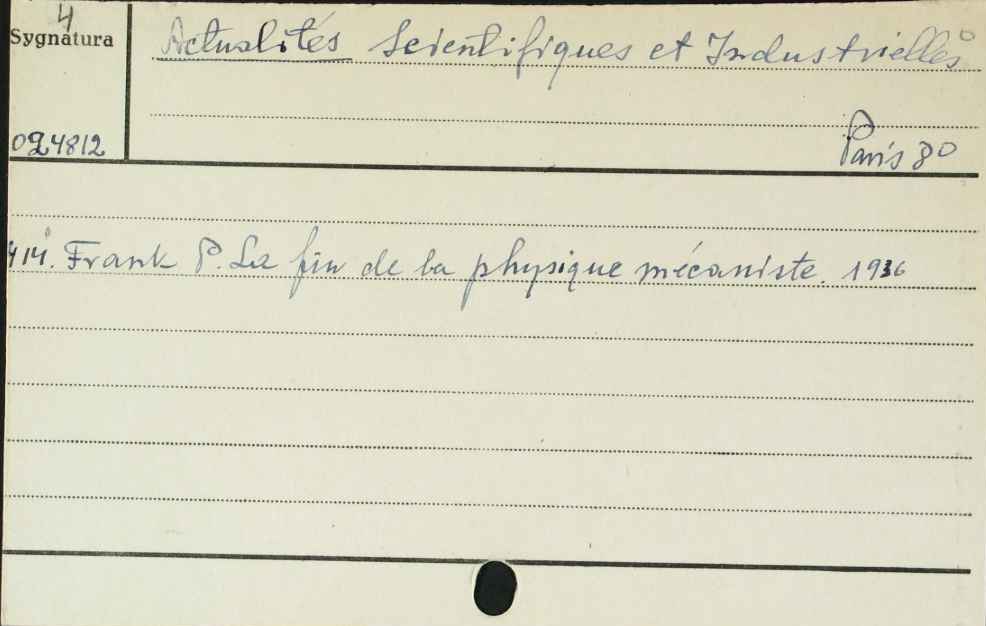 4
Sygnatura
Actualités Scientifiques et Industrielles
024812
Paris 8°
414. Frank P. La fin de la physique mécaniste. 1936